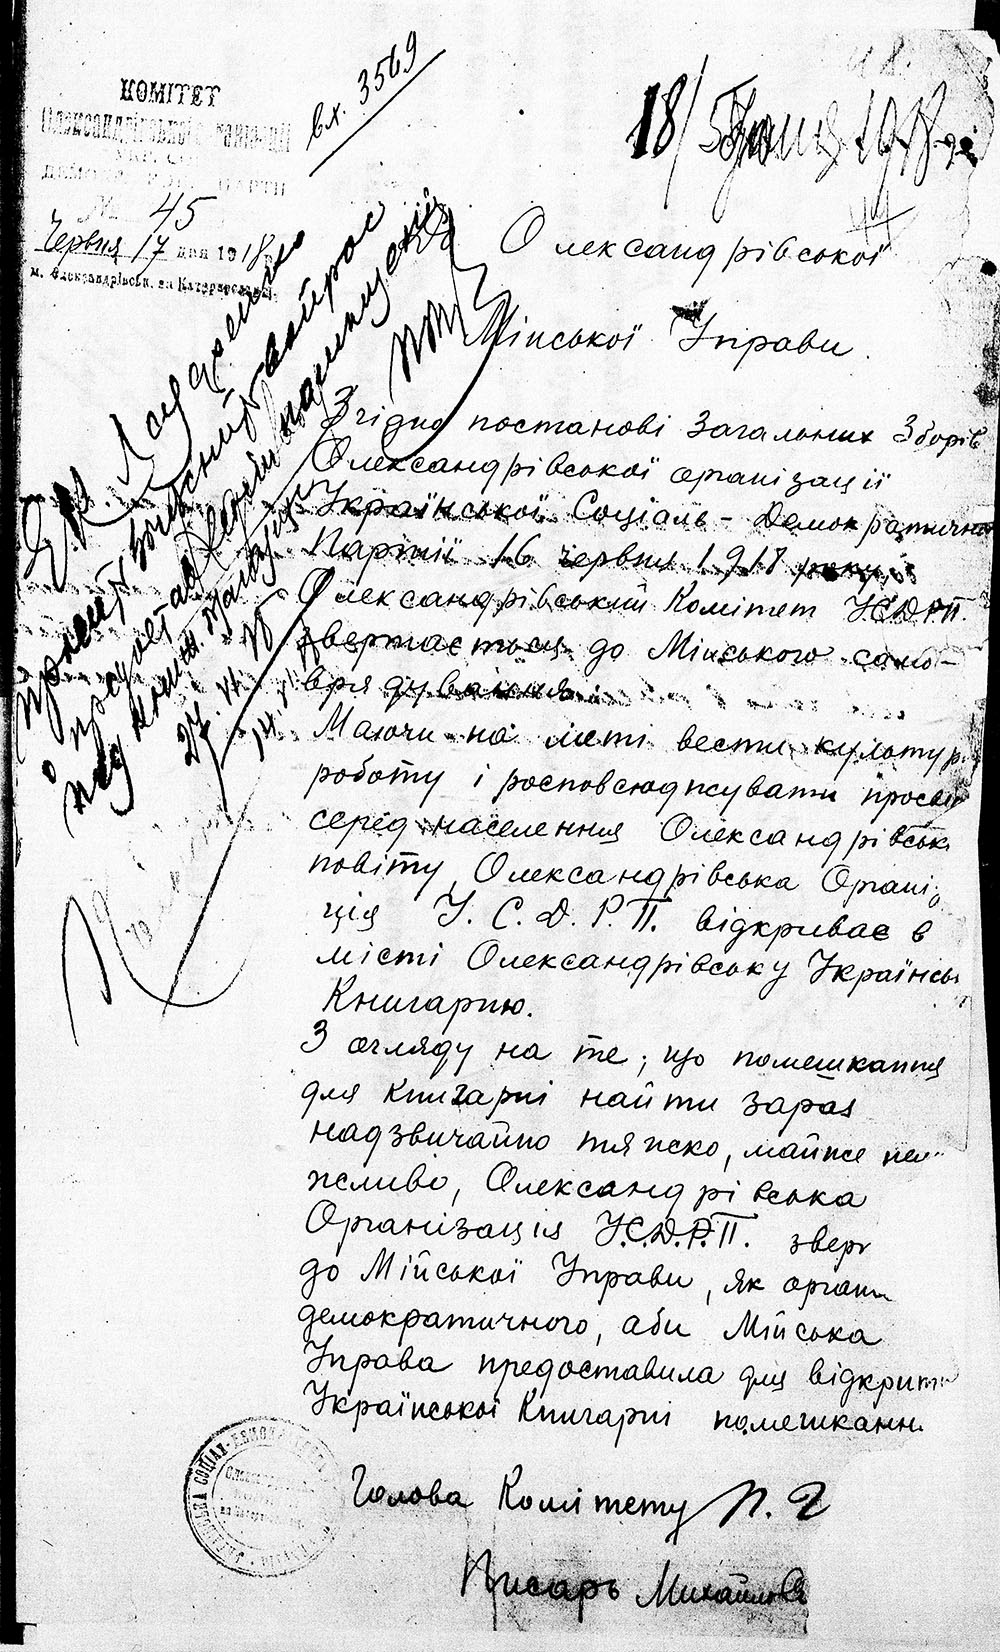 КОМІТЕТ
Олександрівської
УКР. СОЦ.
№ 45
Червня 17 дня 1918
м. Олександрівськ, на Катеринославщ.
вх. 3569
18/5 1918
Олександрівської
Міської Управи.
Згідно постанові Загальних Зборів
Олександрівської організації
Української Соціаль-Демократично
Партії 16 червня 1918 року,
Олександрівський Комітет У.С.Д.Р.П.
звертається до Міського само-
врядування.
Маючи на меті вести культур
роботу і росповсюджувати просві
серед населення Олександрівськ
повіту, Олександрівська Органі
ція У.С.Д.Р.П. відкриває в
місті Олександрівську Українсь
Книгарню.
З огляду на те, що помешкання
для книгарні найти зараз
надзвичайно тяжко, майже нем
жливо, Олександрівська
Організація У.С.Д.Р.П. зверт
до Мійської Управи, як орган
демократичного, аби Мійська
Управа предоставила для відкриття
Української Книгарні помешкання
Голова Комітету П.
Писарь Михайлов